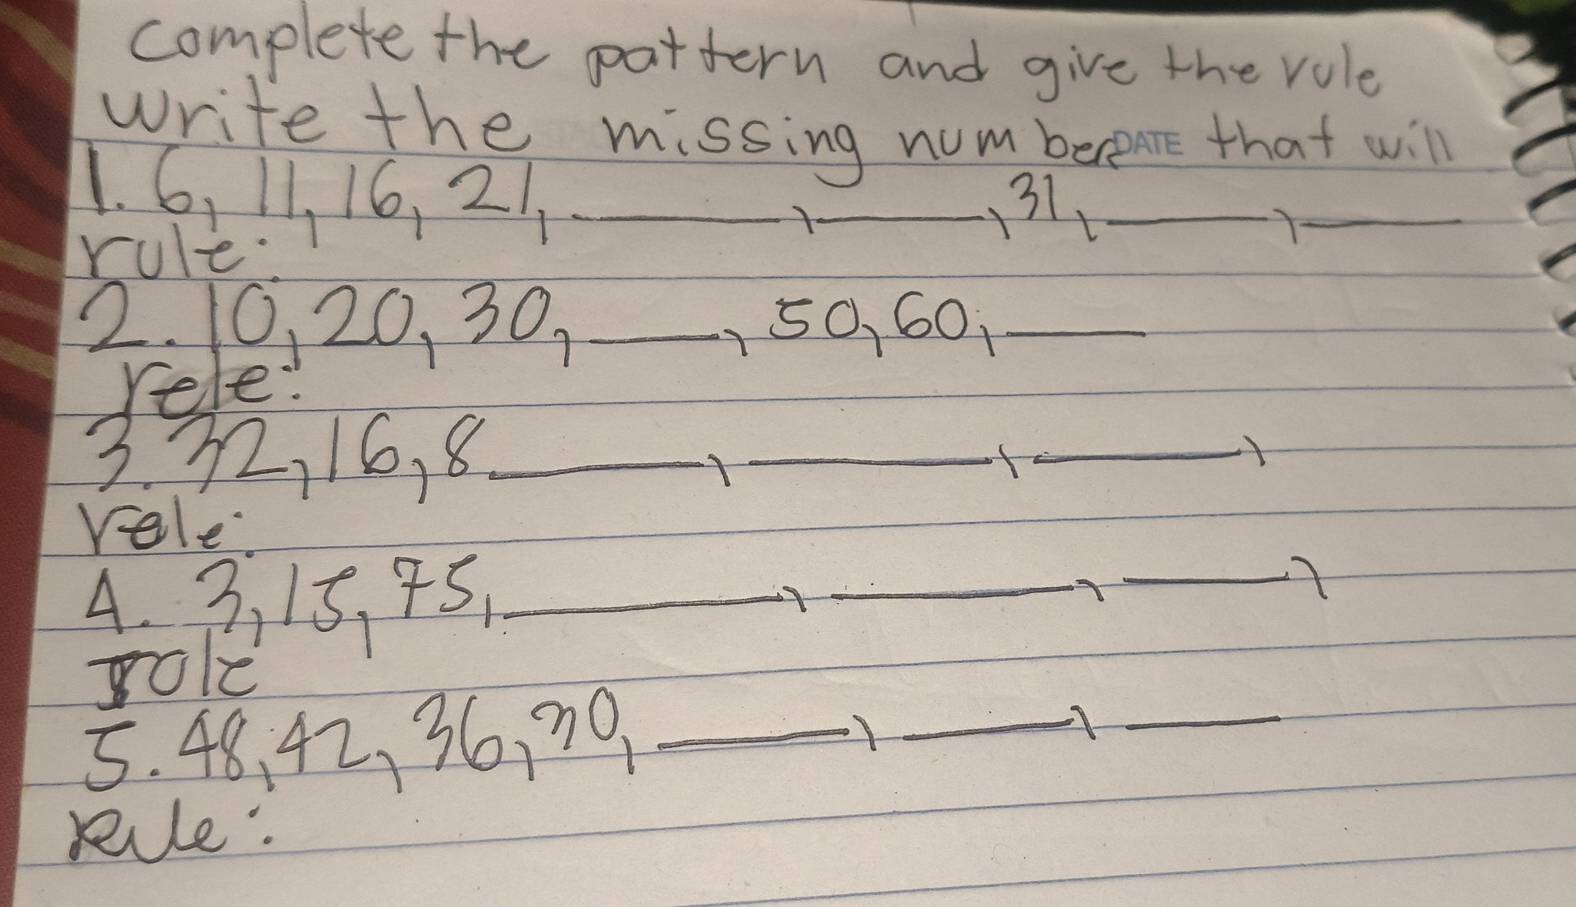 complete the pattern and give the rule
write the missing number DATE that will
1. 6, 11, 16, 21, ____, ____, 31, ____, ____
rule:
2. 10, 20, 30, ____, 50, 60, ____
rele:
3. 32, 16, 8 ____, ____, ____,
rele:
4. 3, 15, 75, ____, ____, ____,
role
5. 48, 42, 36, 30, ____, ____, ____
rule: